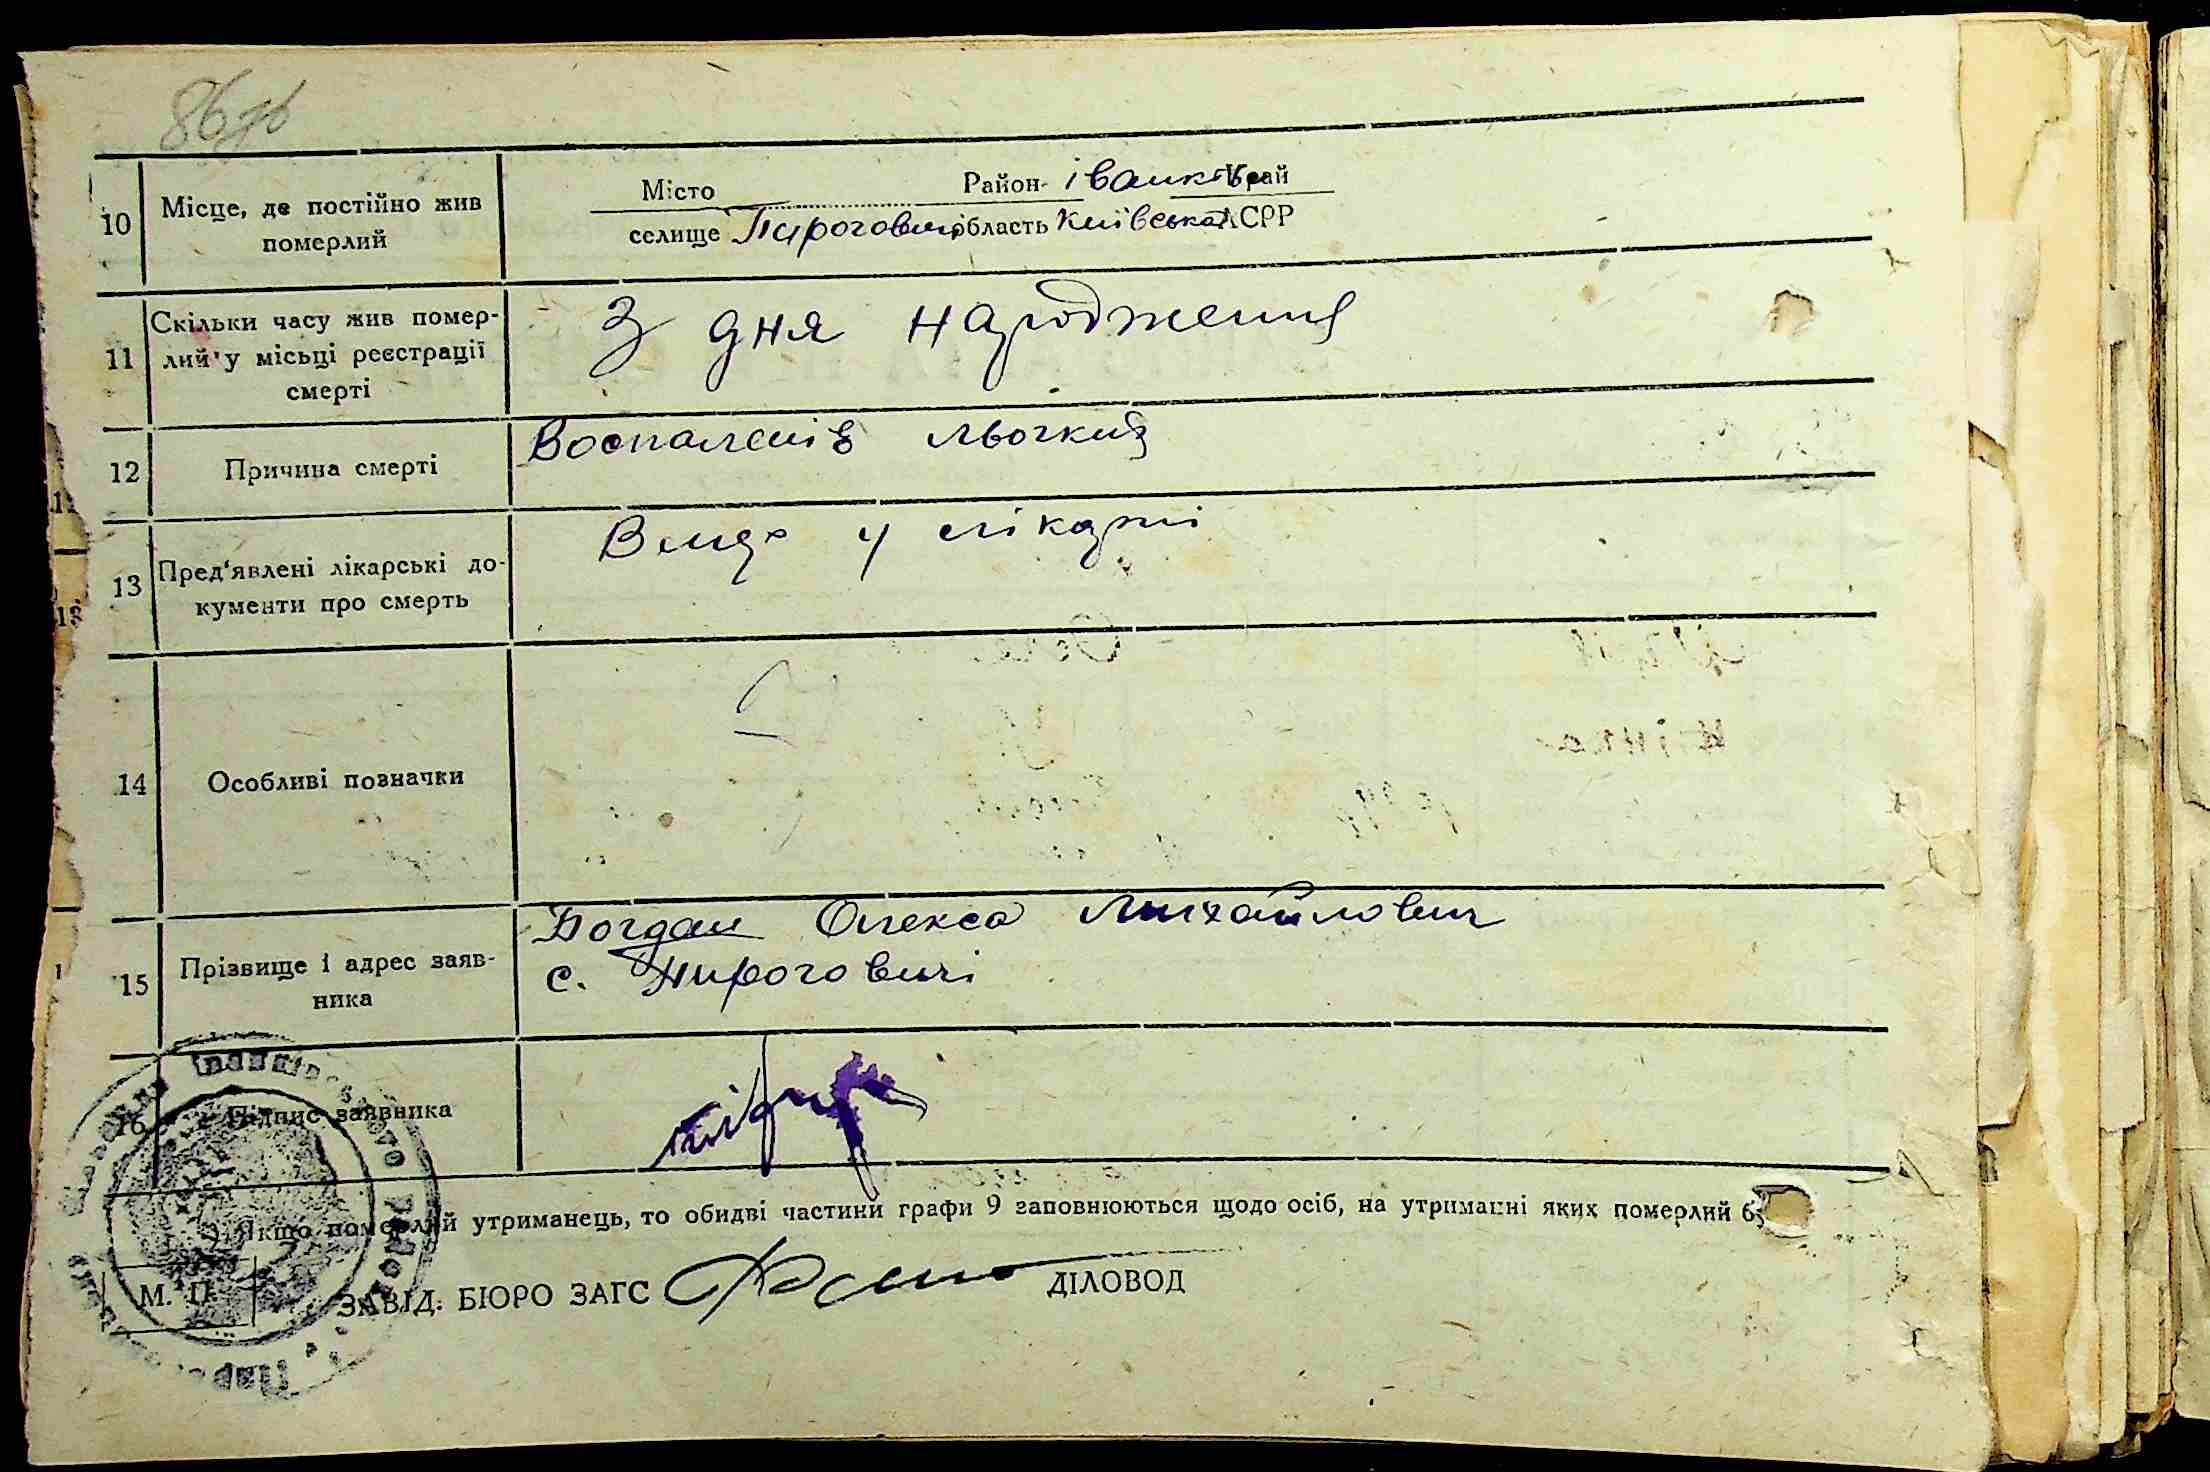 86
10 Місце, де постійно жив померлий
Місто Район Іванків Край
селище Пироговичі область Київська АСРР
11 Скільки часу жив помер-
лий у місьці реєстрації
смерті
З дня народження
12 Причина смерті
Воспаленія льогких
13 Пред'явлені лікарські до-
кументи про смерть
у лікарні
14 Особливі позначки
15 Прізвище і адрес заяв-
ника
Богдан Олекса Михайлович
с. Пироговичі
16 Підпис заявника
Якщо померлий утриманець, то обидві частини графи 9 заповнюються щодо осіб, на утриманні яких померлий
М. П.
ЗАВІД. БЮРО ЗАГС ДІЛОВОД